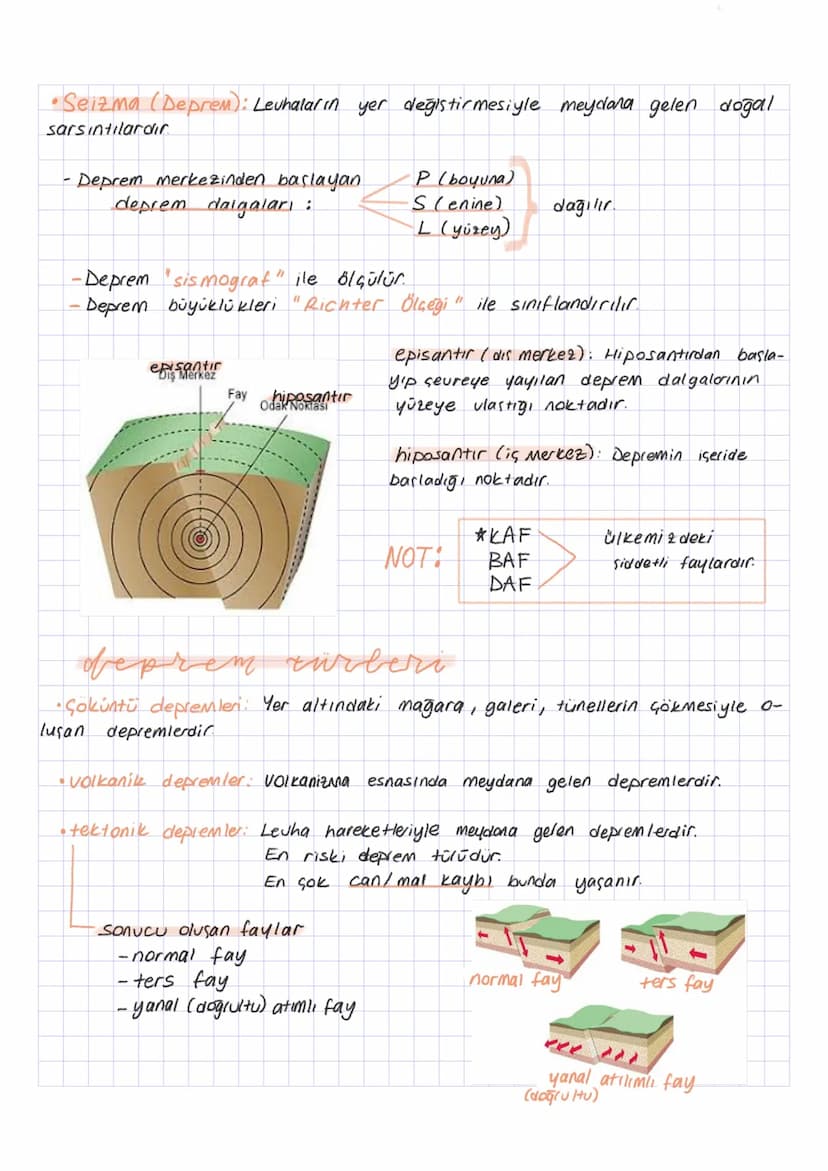 • Seizma (Deprem): Levhaların yer değiştirmesiyle meydana gelen doğal
sarsıntılardır.
- Deprem merkezinden başlayan
deprem dalgaları :
P (boyuna)
S (enine)
L (yüzey)
dağılır.
- Deprem "sismograf" ile ölçülür.
- Deprem büyüklükleri "Richter Ölçeği" ile sınıflandırılır.
episantır
Dış Merkez
Fay
hiposantır
Odak Noktası
episantır (dış merkez): Hiposantırdan başla-
yıp çevreye yayılan deprem dalgalarının
yüzeye ulaştığı noktadır.
hiposantır (iç merkez): Depremin içeride
başladığı noktadır.
NOT:
*KAF
BAF
DAF
ülkemizdeki
şiddetli faylardır.
deprem türleri
• Çöküntü depremleri: Yer altındaki mağara, galeri, tünellerin çökmesiyle o-
luşan depremlerdir.
• volkanik depremler: volkanizma esnasında meydana gelen depremlerdir.
• tektonik depremler: Levha hareketleriyle meydana gelen depremlerdir.
En riski deprem türüdür.
En çok can/mal kaybı bunda yaşanır.
sonucu oluşan faylar
- normal fay
- ters fay
- yanal (doğrultu) atımlı fay
normal fay
ters fay
yanal atılımlı fay
(doğrultu)